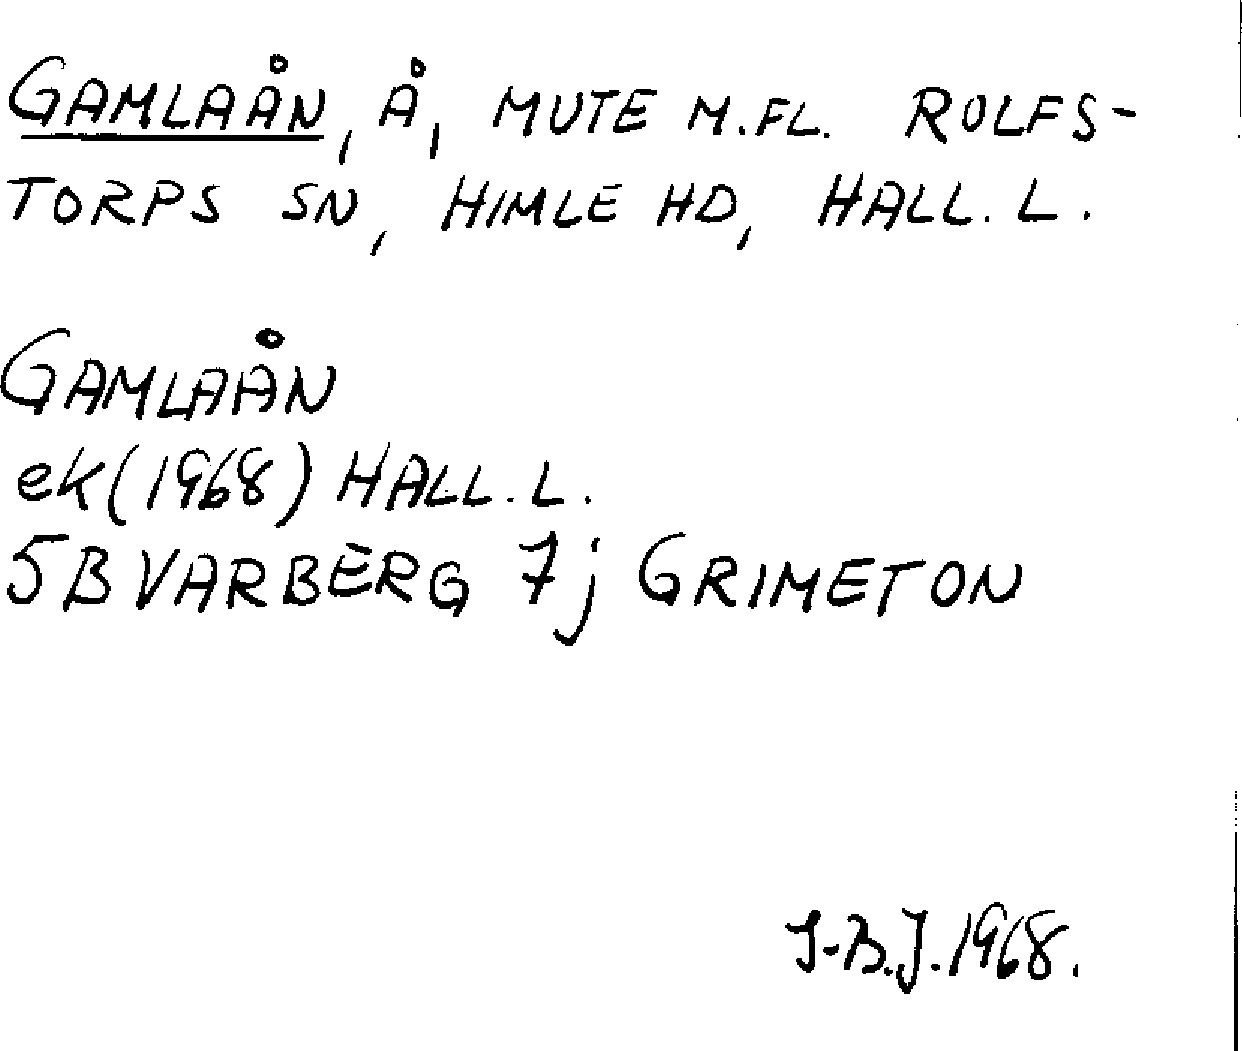 GAMLAÅN, Å, MUTE M.FL. ROLFS-
TORPS SN, HIMLE HD, HALL. L.
GAMLAÅN
ek(1968) HALL. L.
5B VARBERG 7j GRIMETON
J-B.J. 1968.